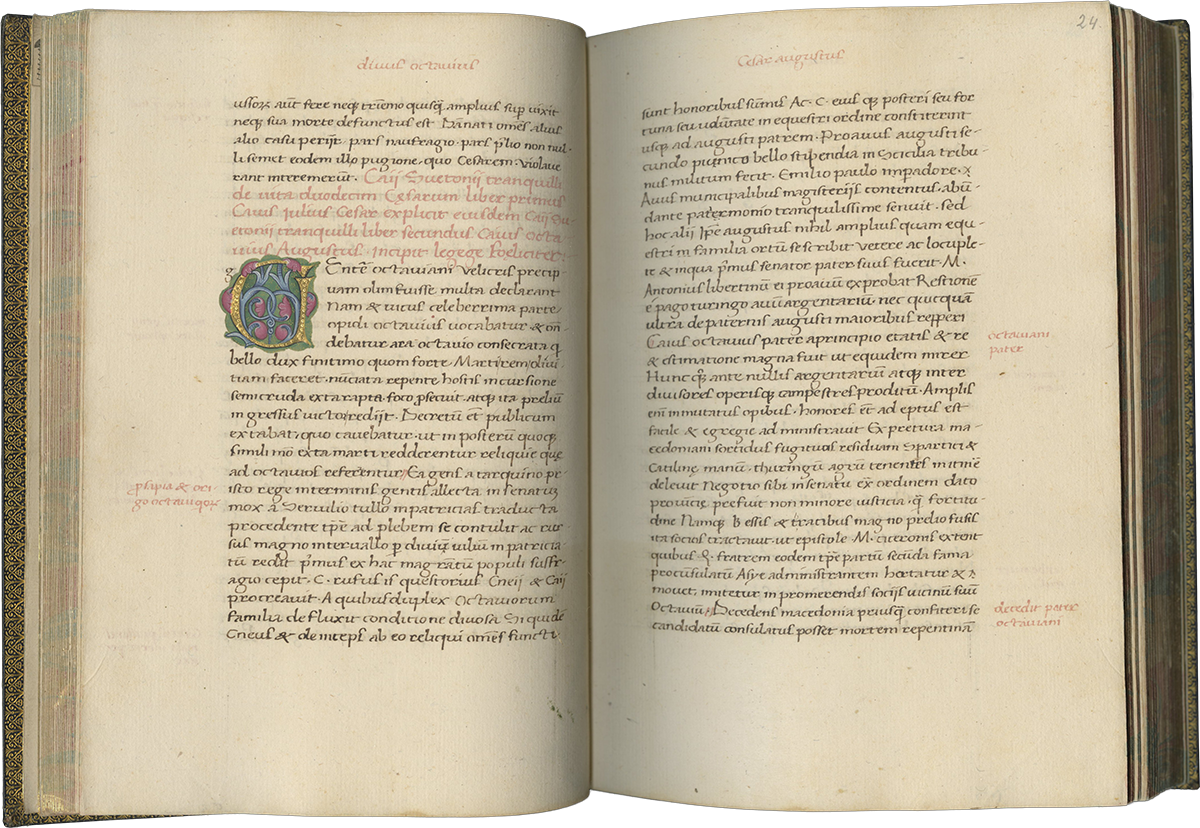 divus octavius
ussorꝝ aut̄ fere neqꝫ trīemo quisqꝫ amplius sup̄ vixit
neqꝫ sua morte defunctus est · Dānati om̄es alius
alio casu perijt · pars naufragio · pars p̄lio non nul·
li semet eodem illo pugione, quo Cesarem violaue
rant interemerūt · Caij Suetonij tranquilli
de vita duodecim Cesarum liber primus
Caius Julius Cesar explicit eiusdem Caij Sue
tonij tranquilli liber secundus Caius Octa
uius Augustus · incipit legege foeliciter :
g
Entē octauiani velitris precip
uam olim fuisse multa declarant
Nam & uicus celeberrima parte
opidi octauius uocabatur & on̄
debatur ara octauio consecrata q
bello dux finitimo quom forte · Marti rem diui
tiam faceret · nūciata repente hostis incursione
semicruda exta rapta foco p̄secuit · atqꝫ ita preliū
ingressus uictor redijt · Decretū et̄ publicum
extabat, quo cauebatur · ut in posterū quoqꝫ
simili mō exta marti redderentur reliquie que
ad octauios referentur, Ea gens a tarquino pr
isto rege inter minis gentis allecta in senatū
mox a Seruilio tullo in patricias traducta
procedente tp̄e ad plebem se contulit ac rur
sus magno interuallo p̄ diuū iulium in patricia
tū redit p̄mus ex hac magratum populi suffr
agio cepit · C · rufus is questorius Cneij & Caij
procreauit · A quibus duplex Octauiorum
familia defluxit conditione diuosa Siquidē
Cneus & deinceps ab eo reliqui om̄es functi·
p̄sapia & ori
go octauiorꝝ
Cesar augustus
24.
sunt honoribus sūmis Ac · C · eius qꝫ posteri seu for
tuna seu uolūtate in equestri ordine constiterūt
usqꝫ ad augusti patrem · Proauus augusti se
cundo punico bello stipendia in Scicilia tribu
nus militum fecit · Emilio paulo imp̄adore · x
Auus municipalibus magisterijs contentus, abū
dante patermonio tranquilissime senuit · sed
hoc alij Ip̄e augustus nihil amplius quam equ
estri in familia ortū se scribit vetere ac locuple
te & in qua p̄mus senator pater suus fuerit · M ·
Antonius libertinū ei proauum exprobat Restionē
e pago turingo auū argentariū nec quicquā
ultra de paternis augusti maioribus repperi
Caius octauius pater a principio etatis & re
& estimatione magna fuit ut equidem mirer
Hunc qꝫ ante nullis argentariū atqꝫ inter
diuisores operisqꝫ campestres proditū · Amplis
eni innutatus opibus · honores et̄ adeptus est
facile & egregie administrauit Ex pretura ma
cedoniam sortidus fugituos residuam Spartici &
Catiline manū, thuringū agrū tenentes in itinē
deleuit Negotio sibi in senatu ex ordinem dato
prouincie prefuit non minore iusticia q̄ fortitu
dine Namqꝫ Bessis & tracibus magno predio fusis
ita socios tractauit · ut epistole M · ciceronis extent
quibus Q · fratrem eodem tp̄e partū secūda fama
procūsulatū Asye administrantem hortatur & ꝛ
mouet, imitetur in promerendis socijs uicinū suū
Octauiū, Decedens macedonia priusqꝫ confiteri se
candidatū consulatus posset mortem repentinā
octauiani
pater
decedit pater
octauiani